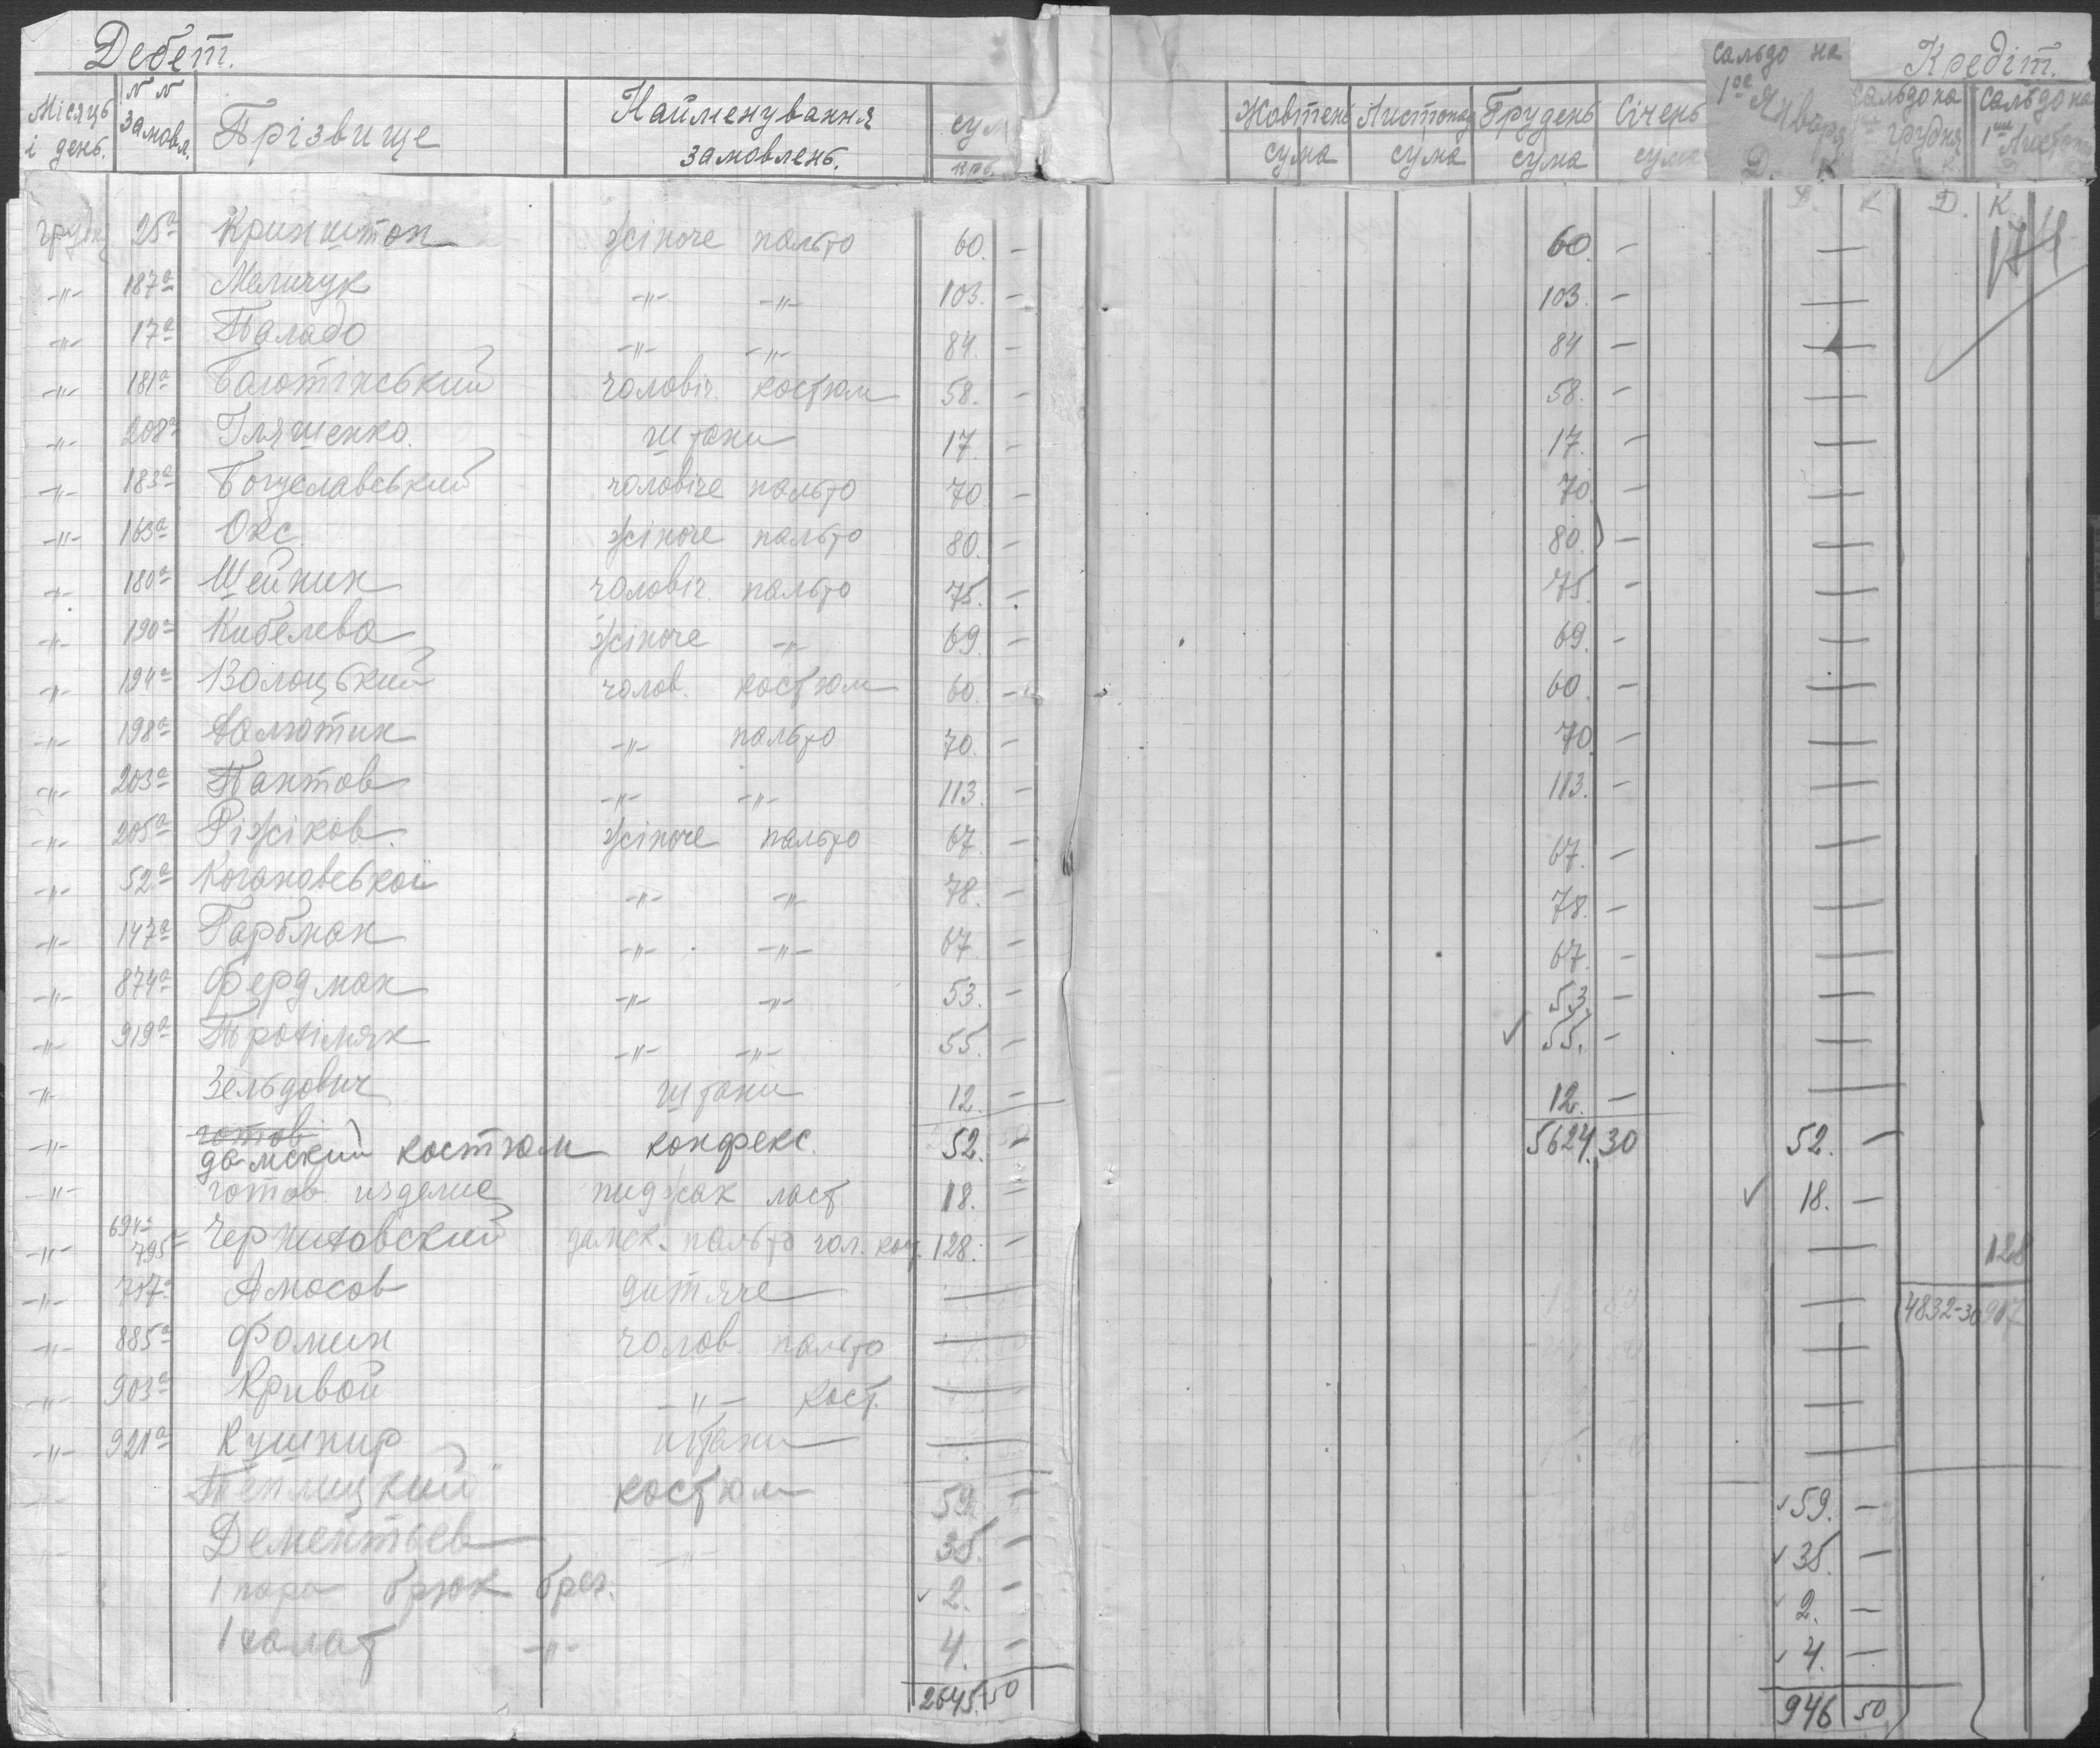 Дебет. Кредіт.
Місяць і день. №№ замовл. Прізвище Найменування замовлень. сум крб. Жовтень сума Листопад сума Грудень сума Січень сума сальдо на 1ое Января Д. К. сальдо на грудня сальдо на 1ше Листопад
Д. К Д. К.
25а Кринштон жіноче пальто 60. – 60. – —
-"- 187а Меличук -"- -"- 103. – 103. – —
-"- 17а Паладо -"- -"- 84. – 84 – —
-"- 181а Балотінський чоловіч. костюм 58. – 58. – —
-"- 208а Іляшенко. штани 17. – 17. – —
-"- 183а Богуславський чоловіче пальто 70 – 70 – —
-"- 163а Окс жіноче пальто 80. – 80. – —
-"- 180а Шейнин чоловіч. пальто 75. – 75. – —
-"- 190а Кибелева жіноче -"- 69. – 69. – —
-"- 194а Волоцький чолов. костюм 60. – 60. – —
-"- 198а Малютин -"- пальто 70. – 70 – —
-"- 203а Пантов -"- -"- 113. – 113. – —
-"- 205а Ріжіков. жіноче пальто 67. – 67. – —
-"- 52а Когановської -"- -"- 78. – 78. – —
-"- 147а Гарбман -"- -"- 67 – 67. – —
-"- 874а Фердман -"- -"- 53. – 53. – —
-"- 919а -"- -"- 55. – ✓ 55. – —
-"- Зельдович штани 12. – 12. – —
готов
-"- дамский костюм конфекс. 52. – 5624.30 52. –
-"- готов изделие пиджак ласт. 18. = ✓ 18. –
-"- 694а 795 дамск. пальто чол. кост. 128. – — 128
-"- 757а Амосов дитяче — — 4832-30 917
-"- 885а Фомин чолов. пальто — —
-"- 903а Кривой -"- кост. — —
-"- 921а Кушнир штани — —
Теплицкий костюм 59. – ✓ 59. –
Дементьев -"- 35. – ✓ 35 –
1 пара брюк брез. ✓ 2. – ✓ 2. –
1 халат -"- 4. – ✓ 4. –
2645.50 946 50